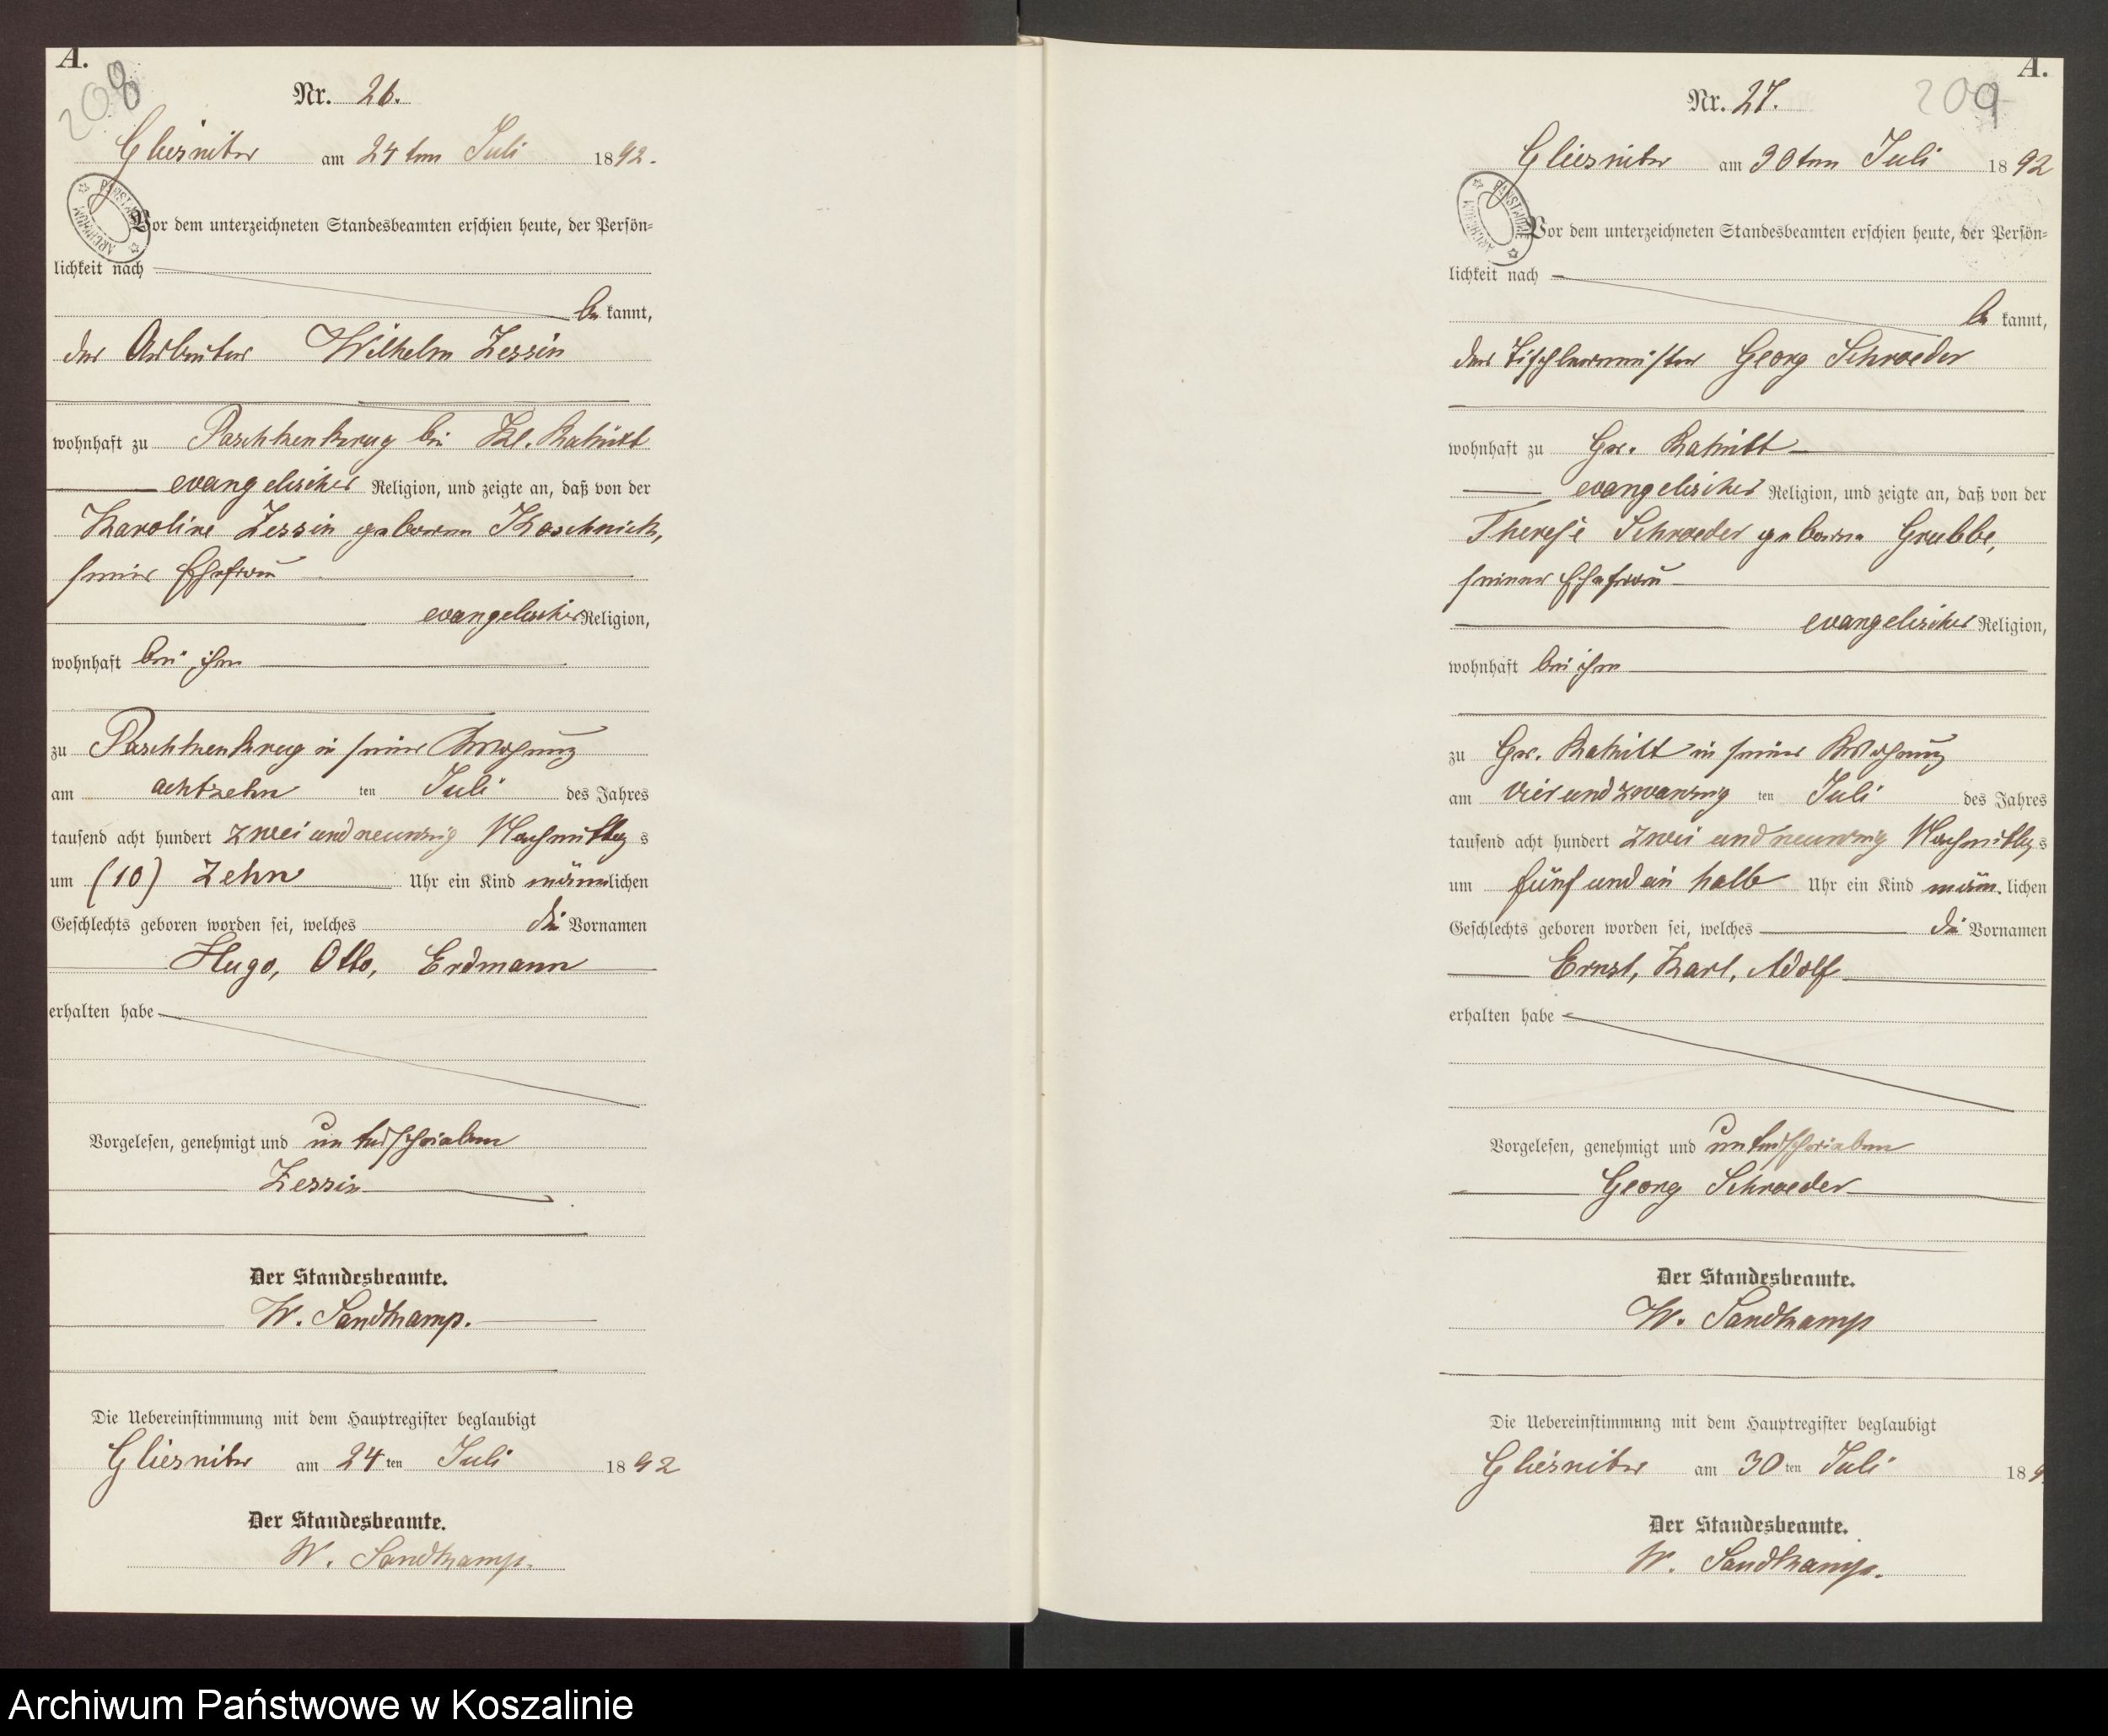 A.
208
Nr. 26.
Gliesnitz am 24ten Juli 1892.
Vor dem unterzeichneten Standesbeamten erschien heute, der Persön=
lichkeit nach
be kannt,
der Arbeiter Wilhelm Zessin
wohnhaft zu Paschkenkrug bei Kl. Rakitt
evangelischer Religion, und zeigte an, daß von der
Karoline Zessin geborene Koschnick,
seiner Ehefrau
evangelischer Religion,
wohnhaft bei ihm
zu Paschkenkrug in seiner Wohnung
am achtzehn ten Juli des Jahres
tausend acht hundert zwei und neunzig Nachmittag s
um (10) Zehn Uhr ein Kind männlichen
Geschlechts geboren worden sei, welches die Vornamen
Hugo, Otto, Erdmann
erhalten habe
Vorgelesen, genehmigt und unterschrieben
Zessin
Der Standesbeamte.
W. Sandkamp.
Die Uebereinstimmung mit dem Hauptregister beglaubigt
Gliesnitz am 24 ten Juli 1892
Der Standesbeamte.
W. Sandkamp.
A.
209
Nr. 27.
Gliesnitz am 30ten Juli 1892
Vor dem unterzeichneten Standesbeamten erschien heute, der Persön=
lichkeit nach
be kannt,
der Tischlermeister Georg Schroeder
wohnhaft zu Gr. Rakitt
evangelischer Religion, und zeigte an, daß von der
Therese Schroeder geborne Grubbe,
seiner Ehefrau
evangelischer Religion,
wohnhaft bei ihm
zu Gr. Rakitt in seiner Wohnung
am vier und zwanzig ten Juli des Jahres
tausend acht hundert zwei und neunzig Nachmittag s
um fünf und ein halb Uhr ein Kind männ. lichen
Geschlechts geboren worden sei, welches die Vornamen
Ernst, Karl, Adolf
erhalten habe
Vorgelesen, genehmigt und unterschrieben
Georg Schroeder
Der Standesbeamte.
W. Sandkamp
Die Uebereinstimmung mit dem Hauptregister beglaubigt
Gliesnitz am 30 ten Juli 189
Der Standesbeamte.
W. Sandkamp.
Archiwum Państwowe w Koszalinie